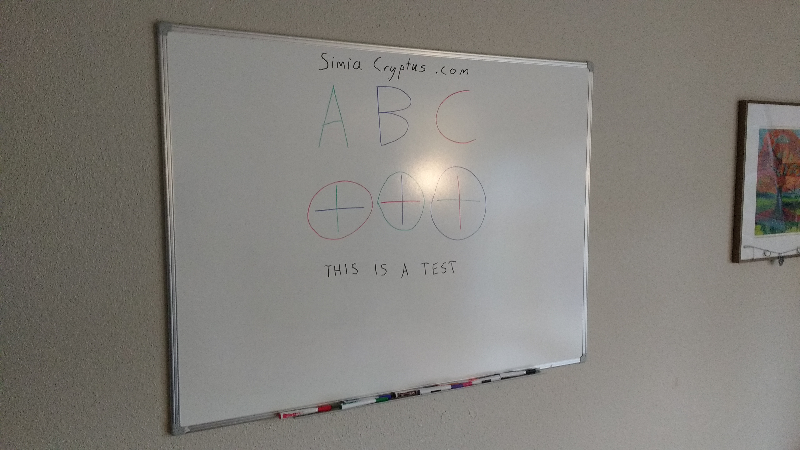 Simia Cryptus.com
A B C
THIS IS A TEST